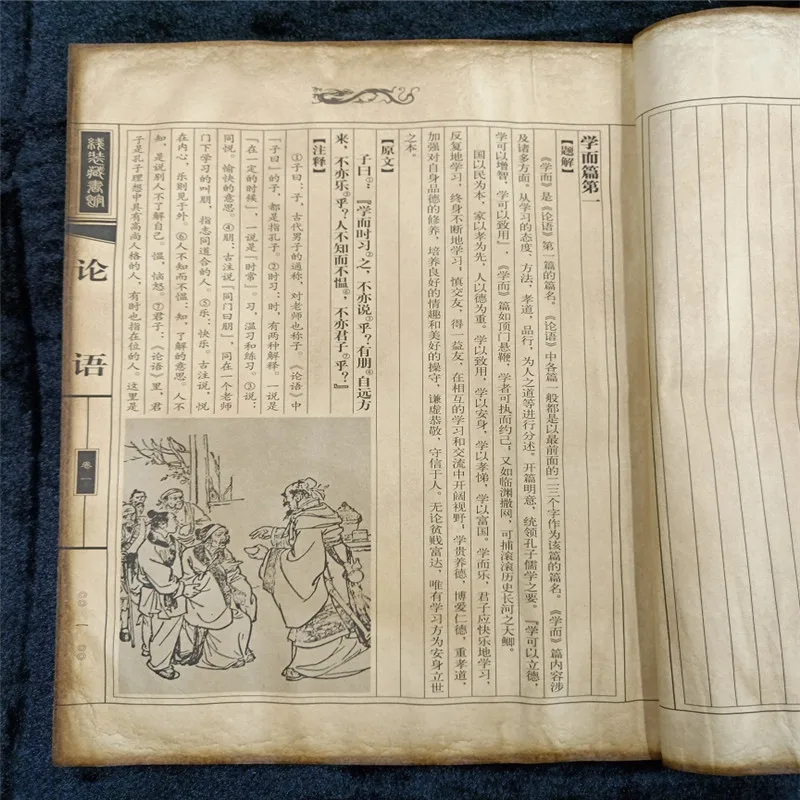 学而篇第一
【题解】
《学而》是《论语》第一篇的篇名。《论语》中各篇一般都是以最前面的二三个字作为该篇的篇名。《学而》篇内容涉
及诸多方面。从学习的态度、方法,孝道,品行,为人之道等进行分述。开篇明意,统领孔子儒学之要。『学可以立德,
学可以增智,学可以致用』,《学而》篇如顶门悬鞭,学者可执而约己;又如临渊撒网,可捕滚滚历史长河之大鲫。
国以民为本,家以孝为先,人以德为重。学以致用,学以安身,学以孝悌,学以富国。学而乐,君子应快乐地学习,
反复地学习,终身不断地学习,慎交友,得一益友,在相互的学习和交流中开阔视野,学贵养德,博爱仁德,重孝道,
加强对自身品德的修养,培养良好的情趣和美好的操守,谦虚恭敬,守信于人。无论贫贱富达,唯有学习方为安身立世
之本。
【原文】
子曰①:『学而时习②之,不亦说③乎?有朋④自远方
来,不亦乐⑤乎?人不知而不愠⑥,不亦君子⑦乎?』
【注释】
①子曰:子,古代男子的通称,对老师也称子。《论语》中
『子曰』的子,都是指孔子。②时习:时,有两种解释。一说是
『在一定的时候』,一说是『时常』。习,温习和练习。③说:
同悦。愉快的意思。④朋:古注说『同门曰朋』,同在一个老师
门下学习的叫朋,指志同道合的人。⑤乐:快乐。古注说,悦
在内心,乐则见于外。⑥人不知而不愠:知,了解的意思。人不
知,是说别人不了解自己。愠,恼怒。⑦君子:《论语》里,君
子是孔子理想中具有高尚人格的人,有时也指在位的人。这里是
线装藏书馆
论语
卷一